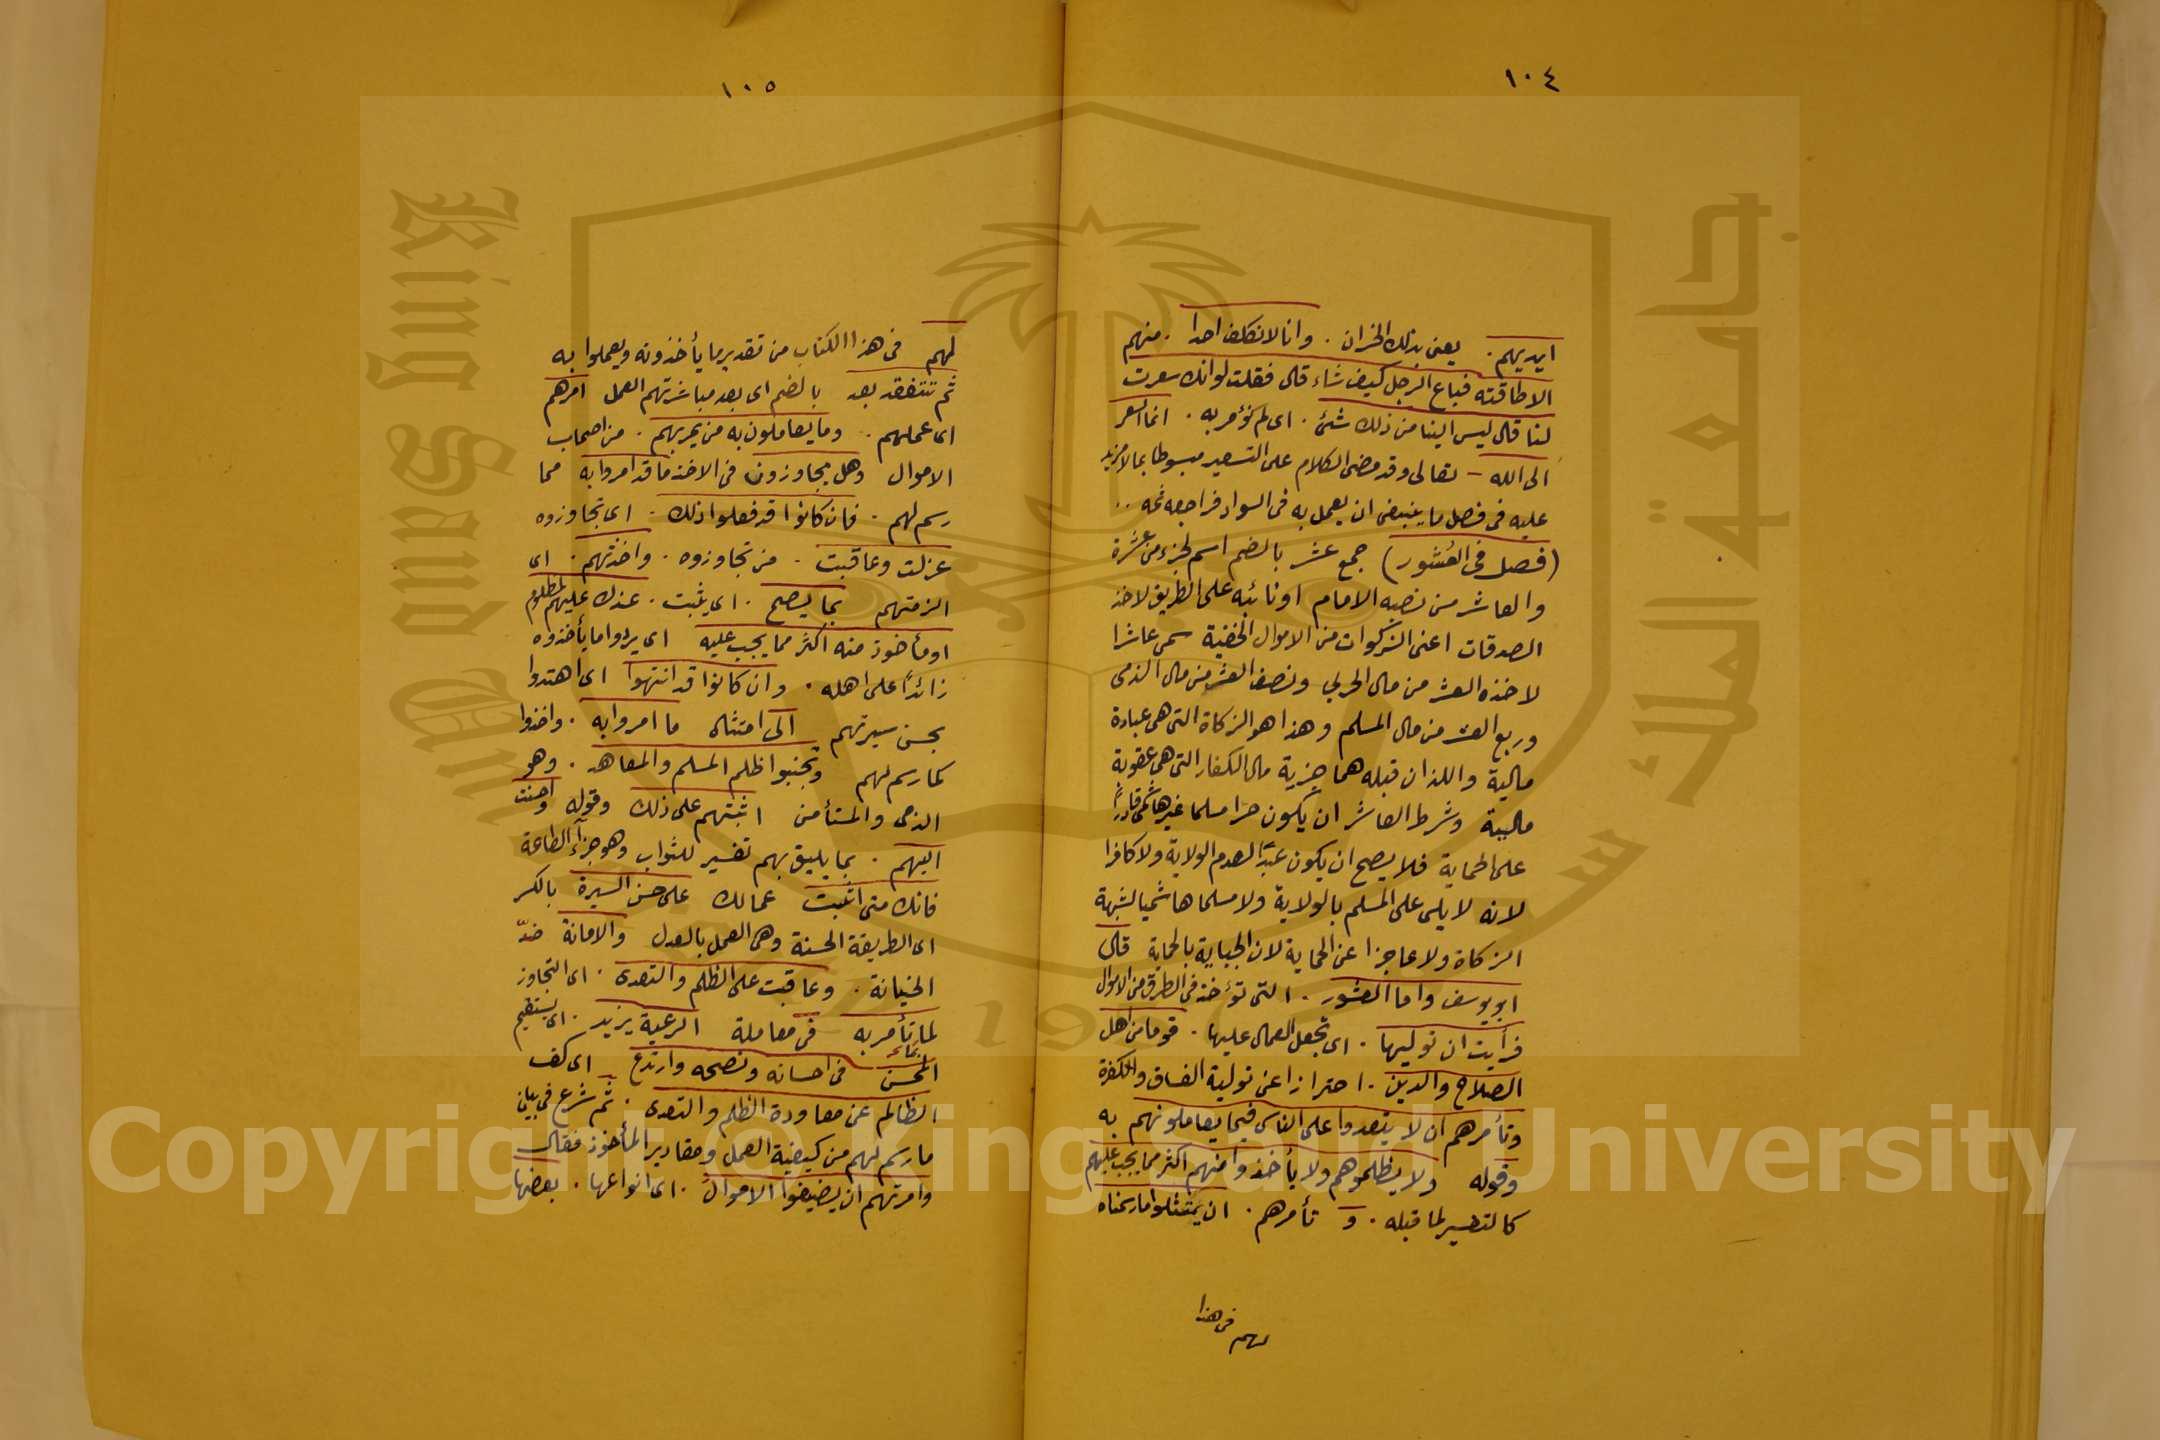 ١٠٤
ايديهم . يعنى بذلك الخزان . وانا لا نكلف احدا . منهم
الا طاقته فباع الرجل كيف شاء قال فقلت لو انك سعرت
لنا قال ليس الينا من ذلك شئ . اى لم نؤمر به . انما السعر
الى الله - تعالى وقد مضى الكلام على التسعير مبسوطا بما لا مزيد
عليه فى فصل ما ينبغى ان يعمل به فى السواد فراجعه ثمه ..
(فصل فى العُشور) جمع عشر بالضم اسم لجزء من عشرة
والعاشر من نصبه الامام او نائبه على الطريق لاخذ
الصدقات اعنى الزكوات من الاموال الخفية سمى عاشرا
لاخذه العشر من مال الحربي ونصف العشر من مال الذمى
وربع العشر من مال المسلم وهذا هو الزكاة التى هى عبادة
مالية واللذان قبله هما جزية مال الكفار التى هى عقوبة
مالية وشرط العاشر ان يكون حرّا مسلما غير هاشمى قادرًا
على الحماية فلا يصح ان يكون عبدًا لعدم الولاية ولا كافرا
لانه لا يلى على المسلم بالولاية ولا مسلما هاشميا لشبهة
الزكاة ولا عاجزا عن الحماية لان الجباية بالحماية قال
ابو يوسف واما العشور . التى تؤخذ فى الطرق من الاموال
فرأيت ان توليها . اى تجعل العمال عليها . قوما من اهل
الصلاح والدين . احترازا عن تولية الفساق والكفرة
وتأمرهم ان لا يتعدوا على الناس فيما يعاملونهم به
وقوله ولا يظلموهم ولا يأخذوا منهم اكثر مما يجب عليهم
كالتفسير لما قبله . و تأمرهم . ان يمتثلوا ما رسمناه
لهم فى هذا
١٠٥
لهم فى هذا الكتاب من تقدير ما يأخذونه ويعملوا به
ثم تتفقد بعد بالضم اى بعد مباشرتهم العمل امرهم
اى عملهم . وما يعاملون به من يمر بهم . من اصحاب
الاموال وهل يجاوزون فى الاخذ ما قد امروا به مما
رسم لهم . فان كانوا قد فعلوا ذلك . اى تجاوزوه
عزلت وعاقبت . من تجاوزوه . واخذتهم . اى
الزمتهم بما يصح . اى يثبت . عندك عليهم لمظلوم
او مأخوذ منه اكثر مما يجب عليه اى يردوا ما يأخذوه
زائدًا على اهله . وان كانوا قد انتهوا اى اهتدوا
بحسن سيرتهم الى امتثال ما امروا به . واخذوا
كما رسم لهم وتجنبوا ظلم المسلم والمعاهد . وهو
الذمى والمستأمن اثبتهم على ذلك وقوله واحسنت
اليهم . بما يليق بهم تفسير للثواب وهو جزاء الطاعة
فانك متى اثبت عمالك على حسن السيرة بالكسر
اى الطريقة الحسنة وهى العمل بالعدل والامانة ضدّ
الخيانة . وعاقبت على الظلم والتعدى . اى التجاوز
لما تأمر به فى معاملة الرعية يزيد . اى يستقيم
المحسن فى احسانه ونصحه وارتدع اى كف
الظالم عن معاودة الظلم والتعدى . ثم شرع فى بيان
ما رسم لهم من كيفية العمل ومقادير المأخوذ فقال
وامرتهم ان يضيفوا الاموال . اى انواعها . بعضها